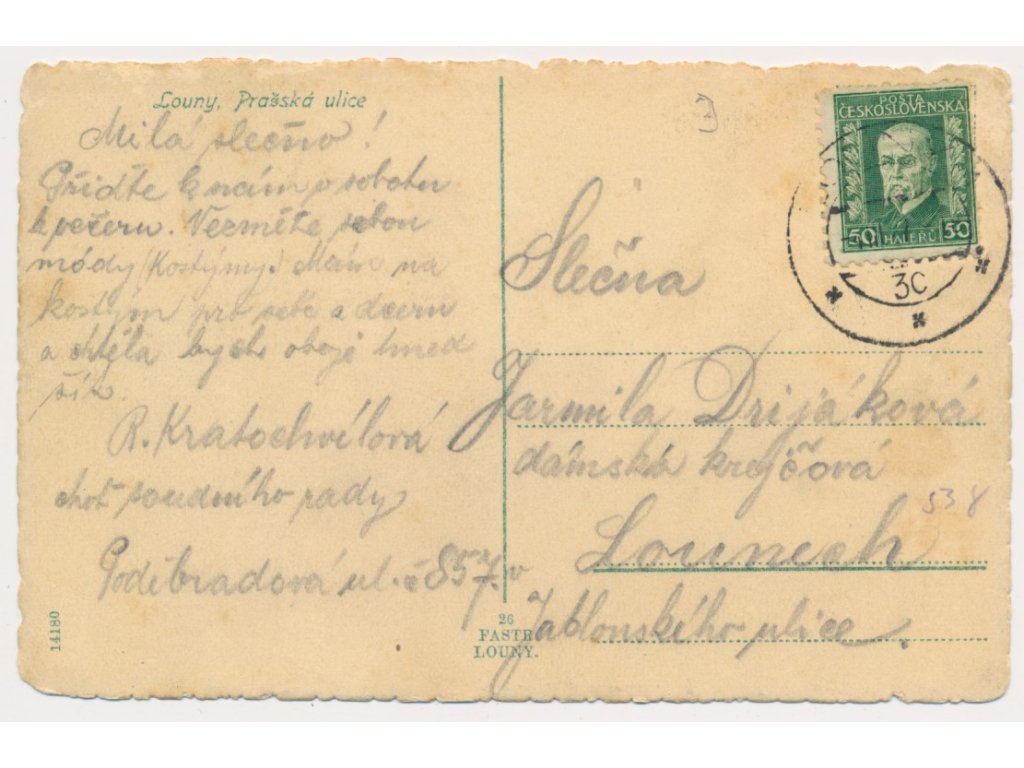 Louny, Pražská ulice
Milá slečno!
Přiďte k nám v sobotu
k večeru. Vezměte sebou
módy (Kostýmy.) Mám na
kostým pro sebe a dceru
a chtěla bych oboje hned
šít.
R. Kratochvílová
choť soudního rady
Poděbradová ul. č 857. v
14180
26
FASTR
LOUNY.
POŠTA
ČESKOSLOVENSKÁ
50 HALÉŘŮ 50
30
Slečna
Jarmila Drijáková
dámská krejčová
Lounech
Jablonského ulice.
538